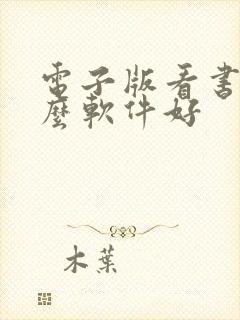 電子版看書
麼軟件好
木葉